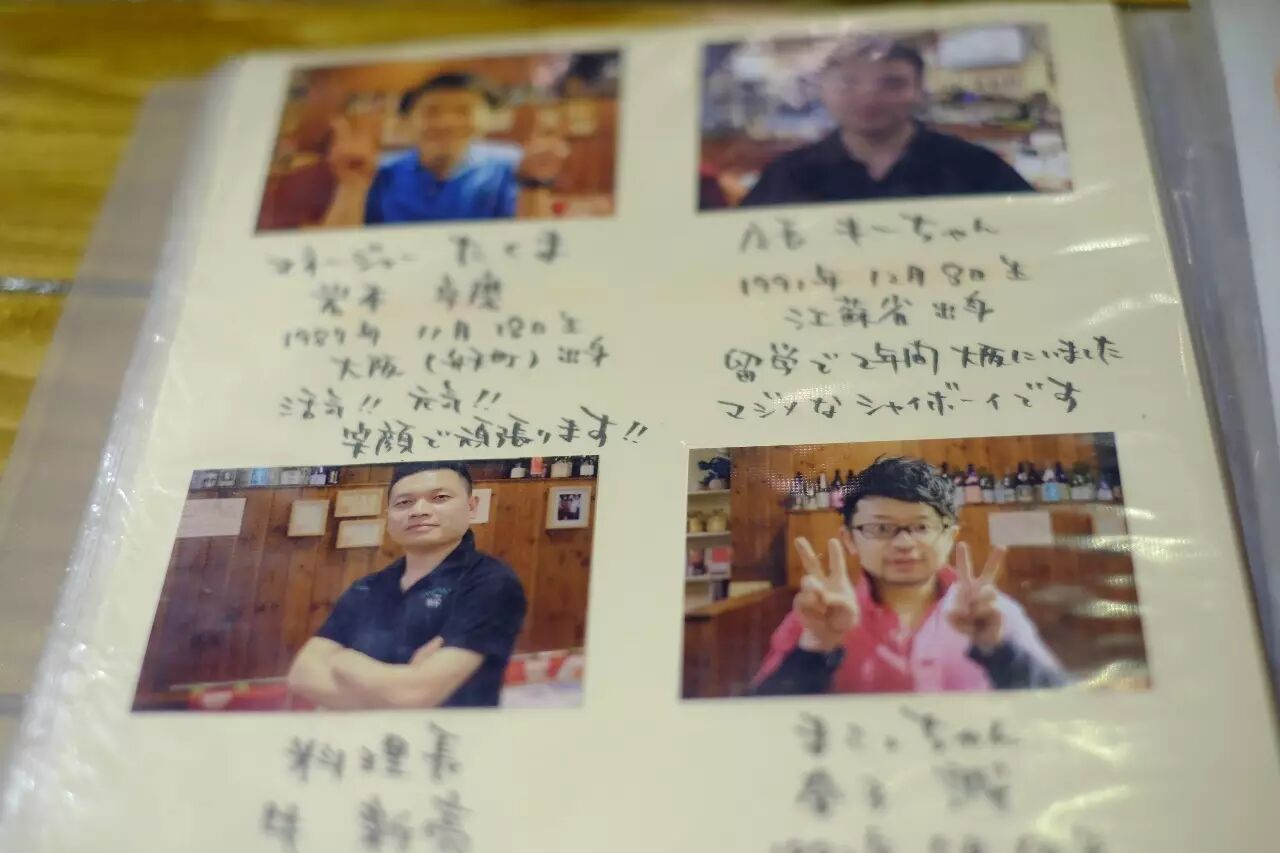 マネージャー たくま
岩本 卓磨
1989年 11月 18日生
大阪 (弁天町) 出身
活気!! 元気!!
笑顔で頑張ります!!
キーちゃん
1991年 12月 8日生
江蘇省 出身
留学で2年間 大阪にいました
マジメな シャイボーイです
料理長
まこっちゃん